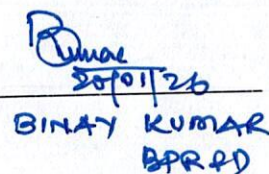 BKumar
20/01/26
BINAY KUMAR
BPR&D